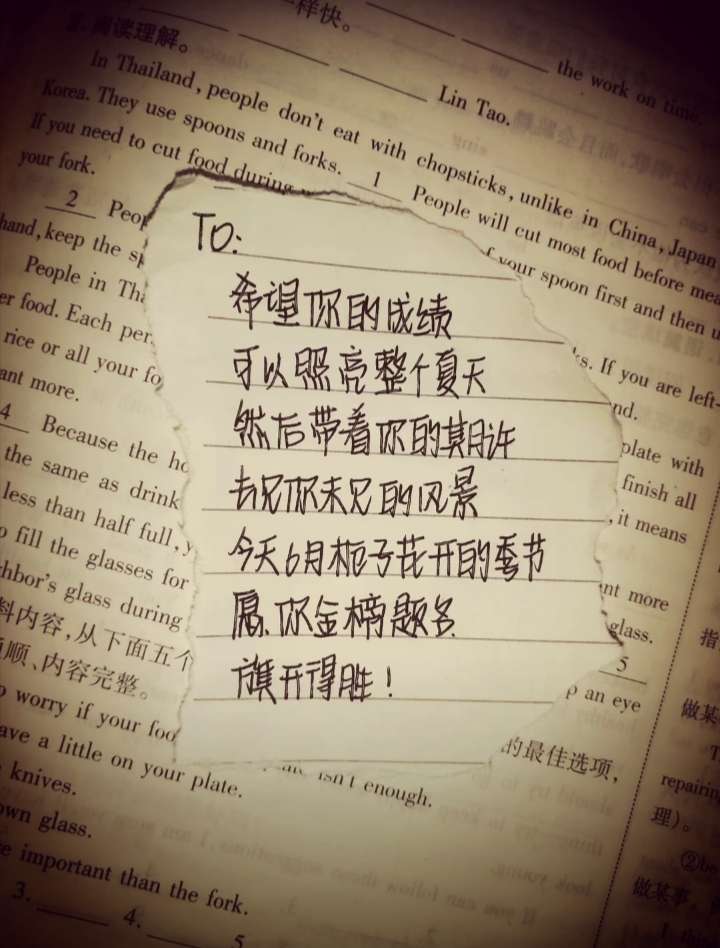 样快。
the work on time.
阅读理解。
Lin Tao.
In Thailand, people don't eat with chopsticks, unlike in China, Japan
Korea. They use spoons and forks. 1 People will cut most food before
If you need to cut food during
f your spoon first and then
your fork.
2
hand, keep the
ks. If you are left-
People in
nd.
er food. Each
plate with
rice or all your
finish all
ant more.
, it means
4 Because the
the same as drink
less than half full,
nt more
o fill the glasses for
glass.
hbor's glass during
5
料内容,从下面五个
p an eye
顺、内容完整。
的最佳选项,
o worry if your
isn't enough.
ave a little on your plate.
knives.
own glass.
e important than the fork.
3. 4. 5
指
做某
repairin
理)。
②be
做某事,
TO:
希望你的成绩
可以照亮整个夏天
然后带着你的期许
去见你未见的风景
今天6月栀子花开的季节
愿你金榜题名
旗开得胜!